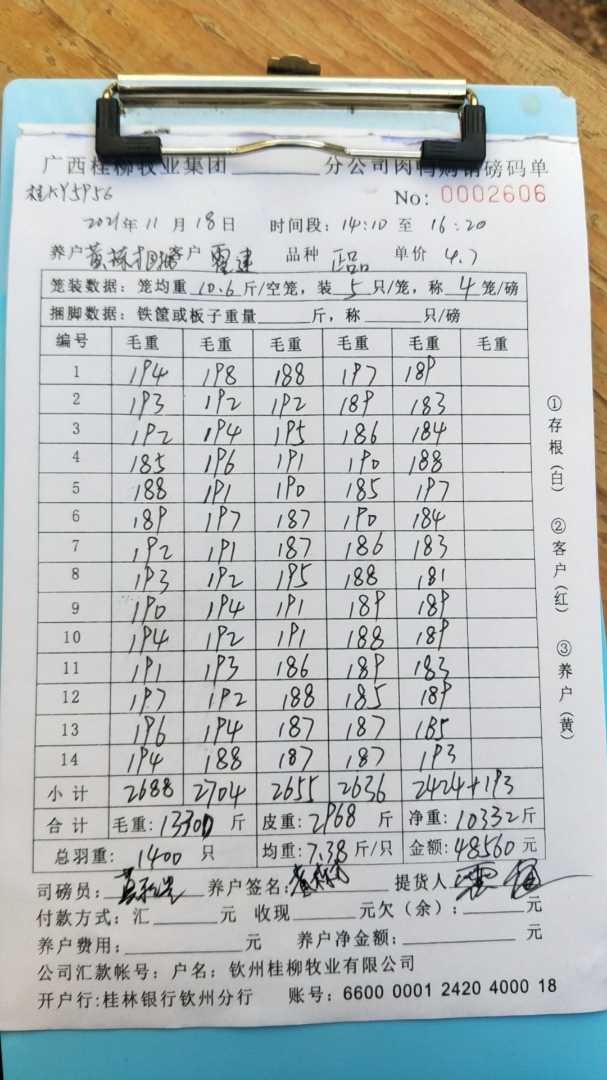 广西桂柳牧业集团______分公司肉鸭购销磅码单
桂KY5956
No: 0002606
2021年11月18日 时间段: 14:10 至 16:20
养户 黄 客户 建 品种 正品 单价 4.7
笼装数据: 笼均重 10.6 斤/空笼, 装 5 只/笼, 称 4 笼/磅
捆脚数据: 铁筐或板子重量______斤, 称______只/磅
编号 毛重 毛重 毛重 毛重 毛重 毛重
1 194 198 188 197 189
2 193 192 192 189 183
3 192 194 195 186 184
4 185 196 191 190 188
5 188 191 190 185 197
6 189 197 187 190 184
7 192 191 187 186 183
8 193 192 195 188 181
9 190 194 191 189 189
10 194 192 191 188 189
11 191 193 186 189 183
12 197 192 188 185 189
13 196 194 187 187 185
14 194 188 187 187 193
小计 2688 2704 2655 2636 2424+193
合计 毛重: 13300 斤 皮重: 2968 斤 净重: 10332 斤
总羽重: 1400 只 均重: 7.38 斤/只 金额: 48560 元
司磅员: 养户签名: 提货人
付款方式: 汇______元 收现______元欠(余):______元
养户费用:______元 养户净金额:______元
公司汇款帐号: 户名: 钦州桂柳牧业有限公司
开户行:桂林银行钦州分行 账号: 6600 0001 2420 4000 18
①存根(白) ②客户(红) ③养户(黄)